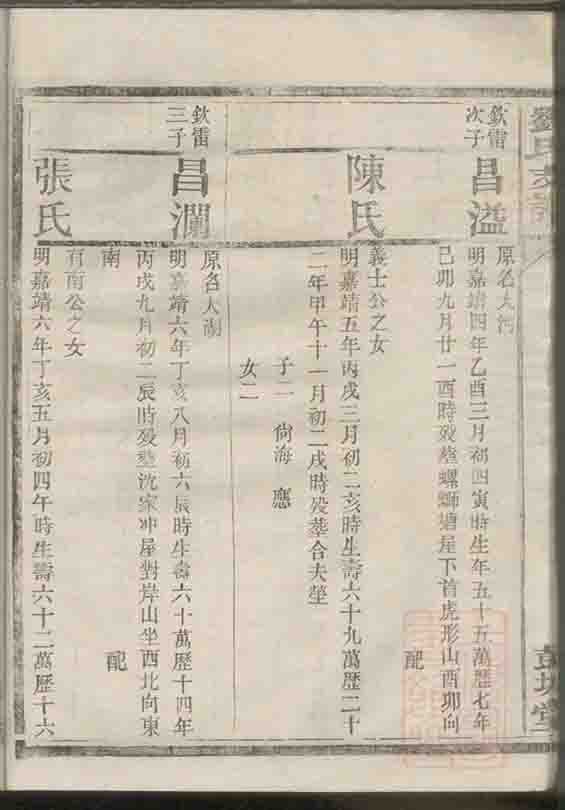 欽雷
次子
昌溢
原名大
明嘉靖四年乙酉三月初四寅時生年五十五萬歷七年
己卯九月廿一酉時歿塟螺螄塘屋下首虎形山酉卯向
配
陳氏
義士公之女
明嘉靖五年丙戌三月初二亥時生壽六十九萬歷二十
二年甲午十一月初二戌時歿塟合夫塋
子二 尙海 應
女二
欽雷
三子
昌瀾
原名大
明嘉靖六年丁亥八月初六辰時生壽六十萬歷十四年
丙戌九月初二辰時歿塟沈家冲屋對岸山坐西北向東
南
配
張氏
有南公之女
明嘉靖六年丁亥五月初四午時生壽六十二萬歷十六